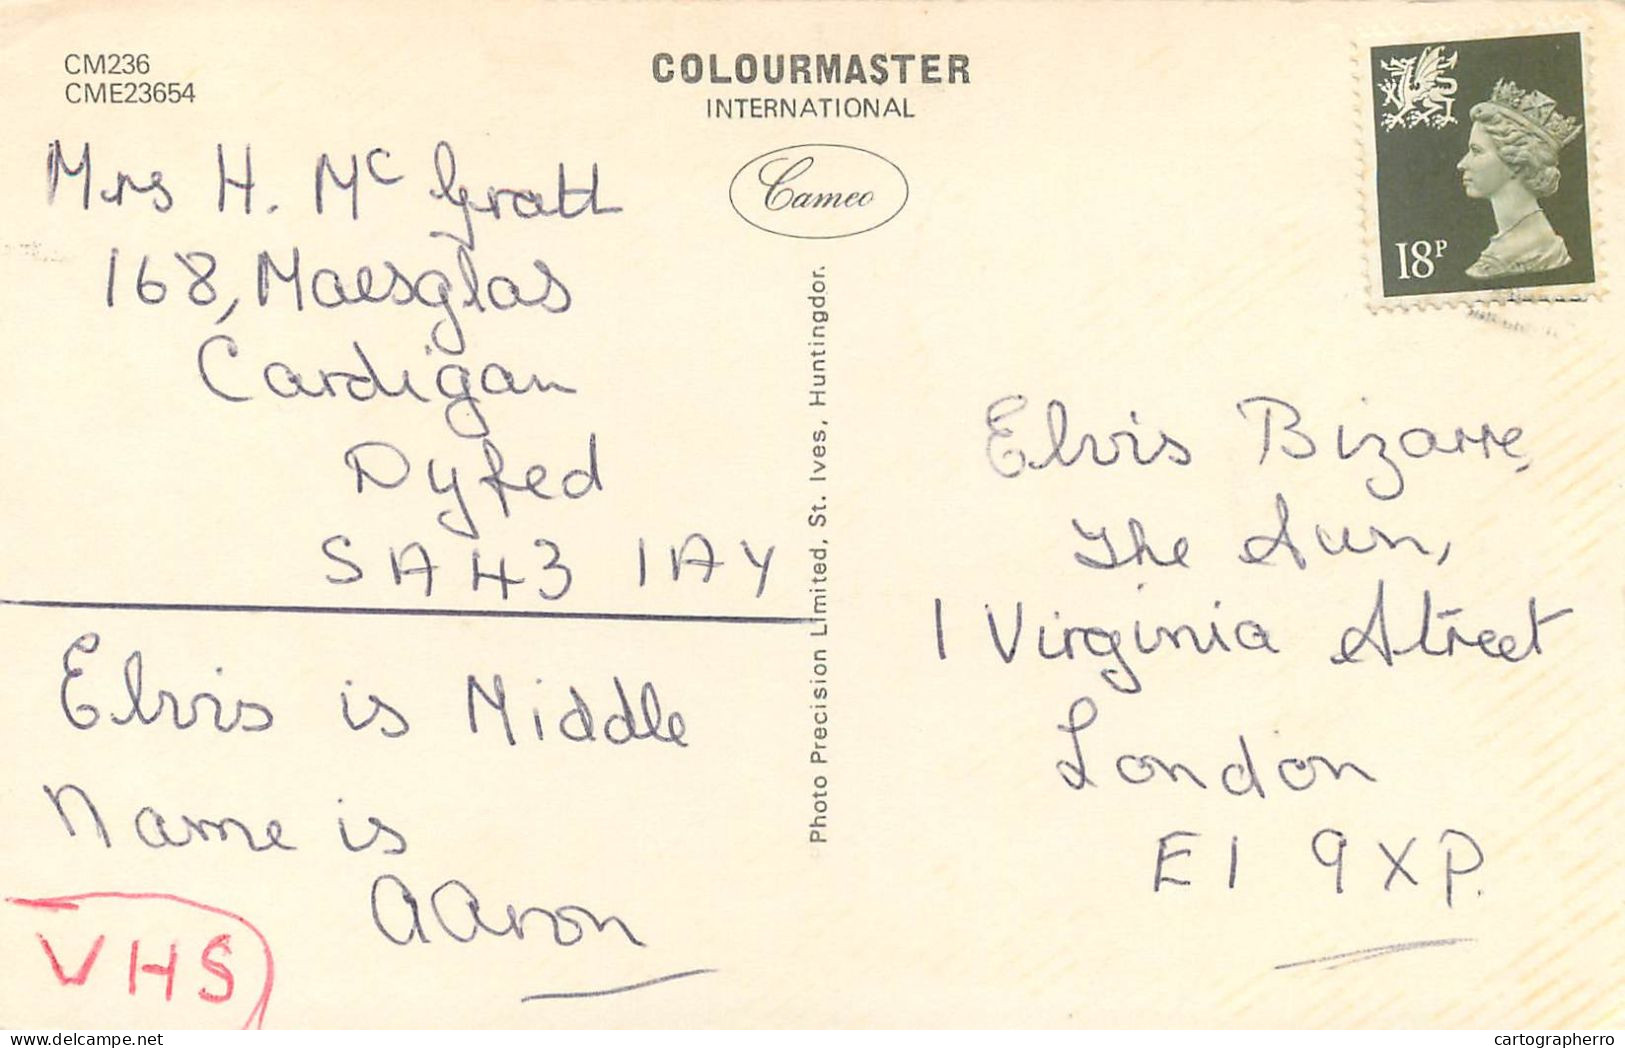 CM236
CME23654
COLOURMASTER
INTERNATIONAL
Cameo
18P
Mrs H. Mc Grath
168, Maesglas
Cardigan
Dyfed
SA43 1AY
Elvis is Middle
Name is
AAron
VHS
Photo Precision Limited, St. Ives, Huntingdon.
Elvis Bizarre,
The Sun,
1 Virginia Street
London
E1 9XP.
cartographerro